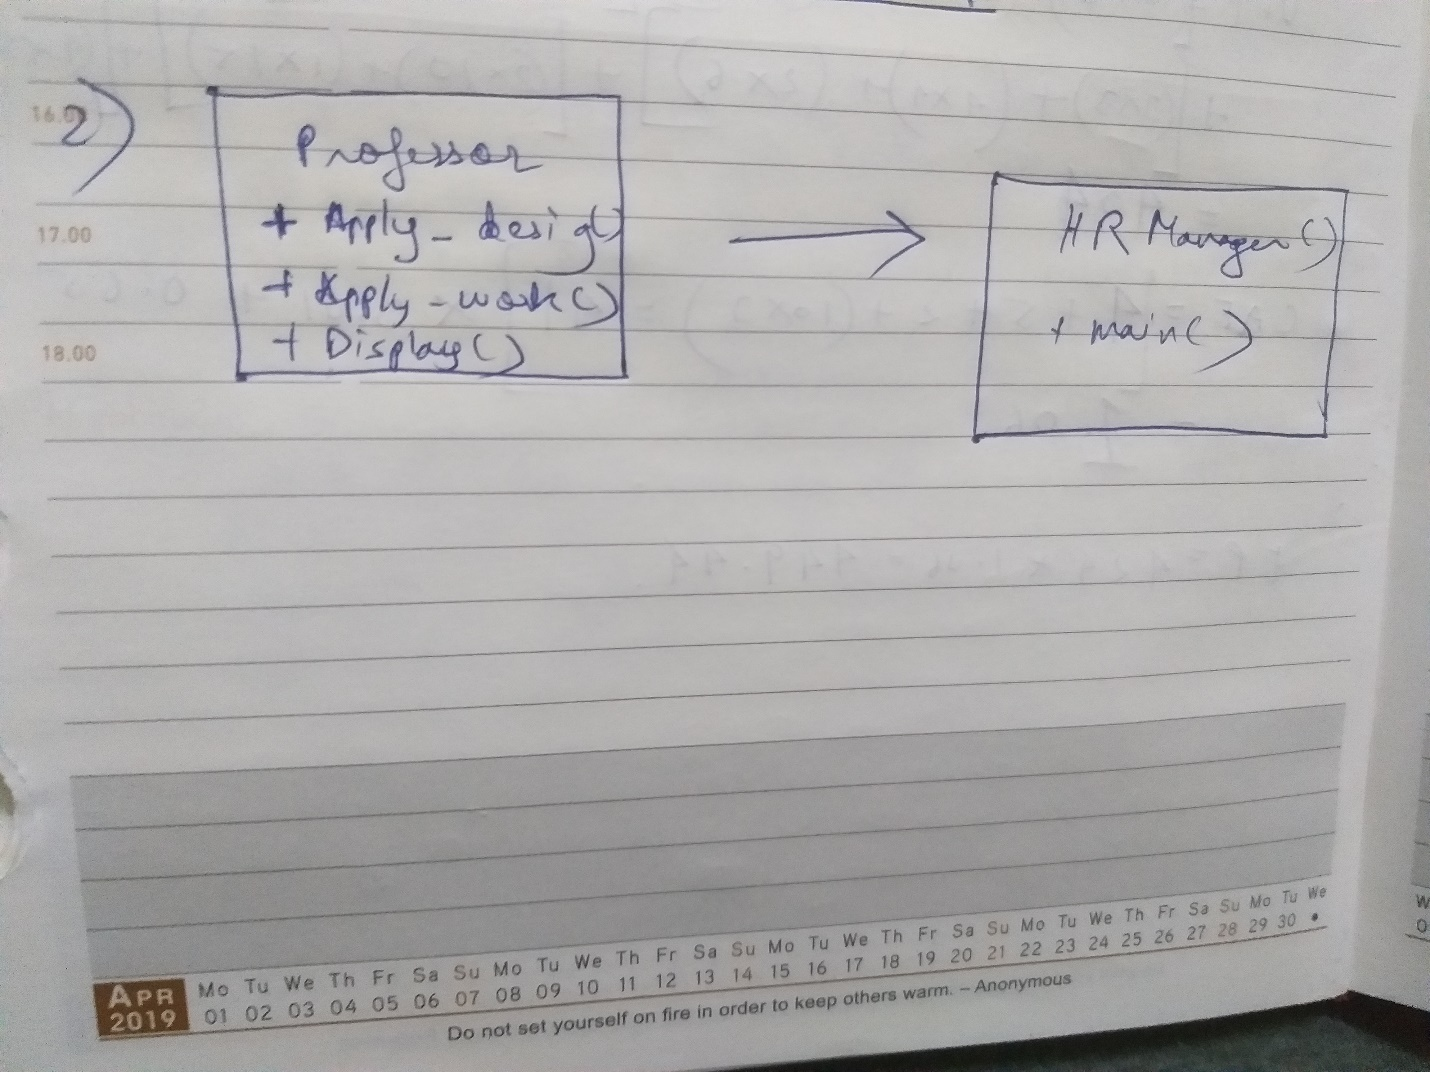 2)
16.00
Professor
+ Apply_desig()
+ Apply-work()
+ Display()
HR Manager()
+ main()
17.00
18.00
Mo Tu We Th Fr Sa Su Mo Tu We Th Fr Sa Su Mo Tu We Th Fr Sa Su Mo Tu We Th Fr Sa Su Mo Tu We
APR 2019
01 02 03 04 05 06 07 08 09 10 11 12 13 14 15 16 17 18 19 20 21 22 23 24 25 26 27 28 29 30 •
Do not set yourself on fire in order to keep others warm. – Anonymous